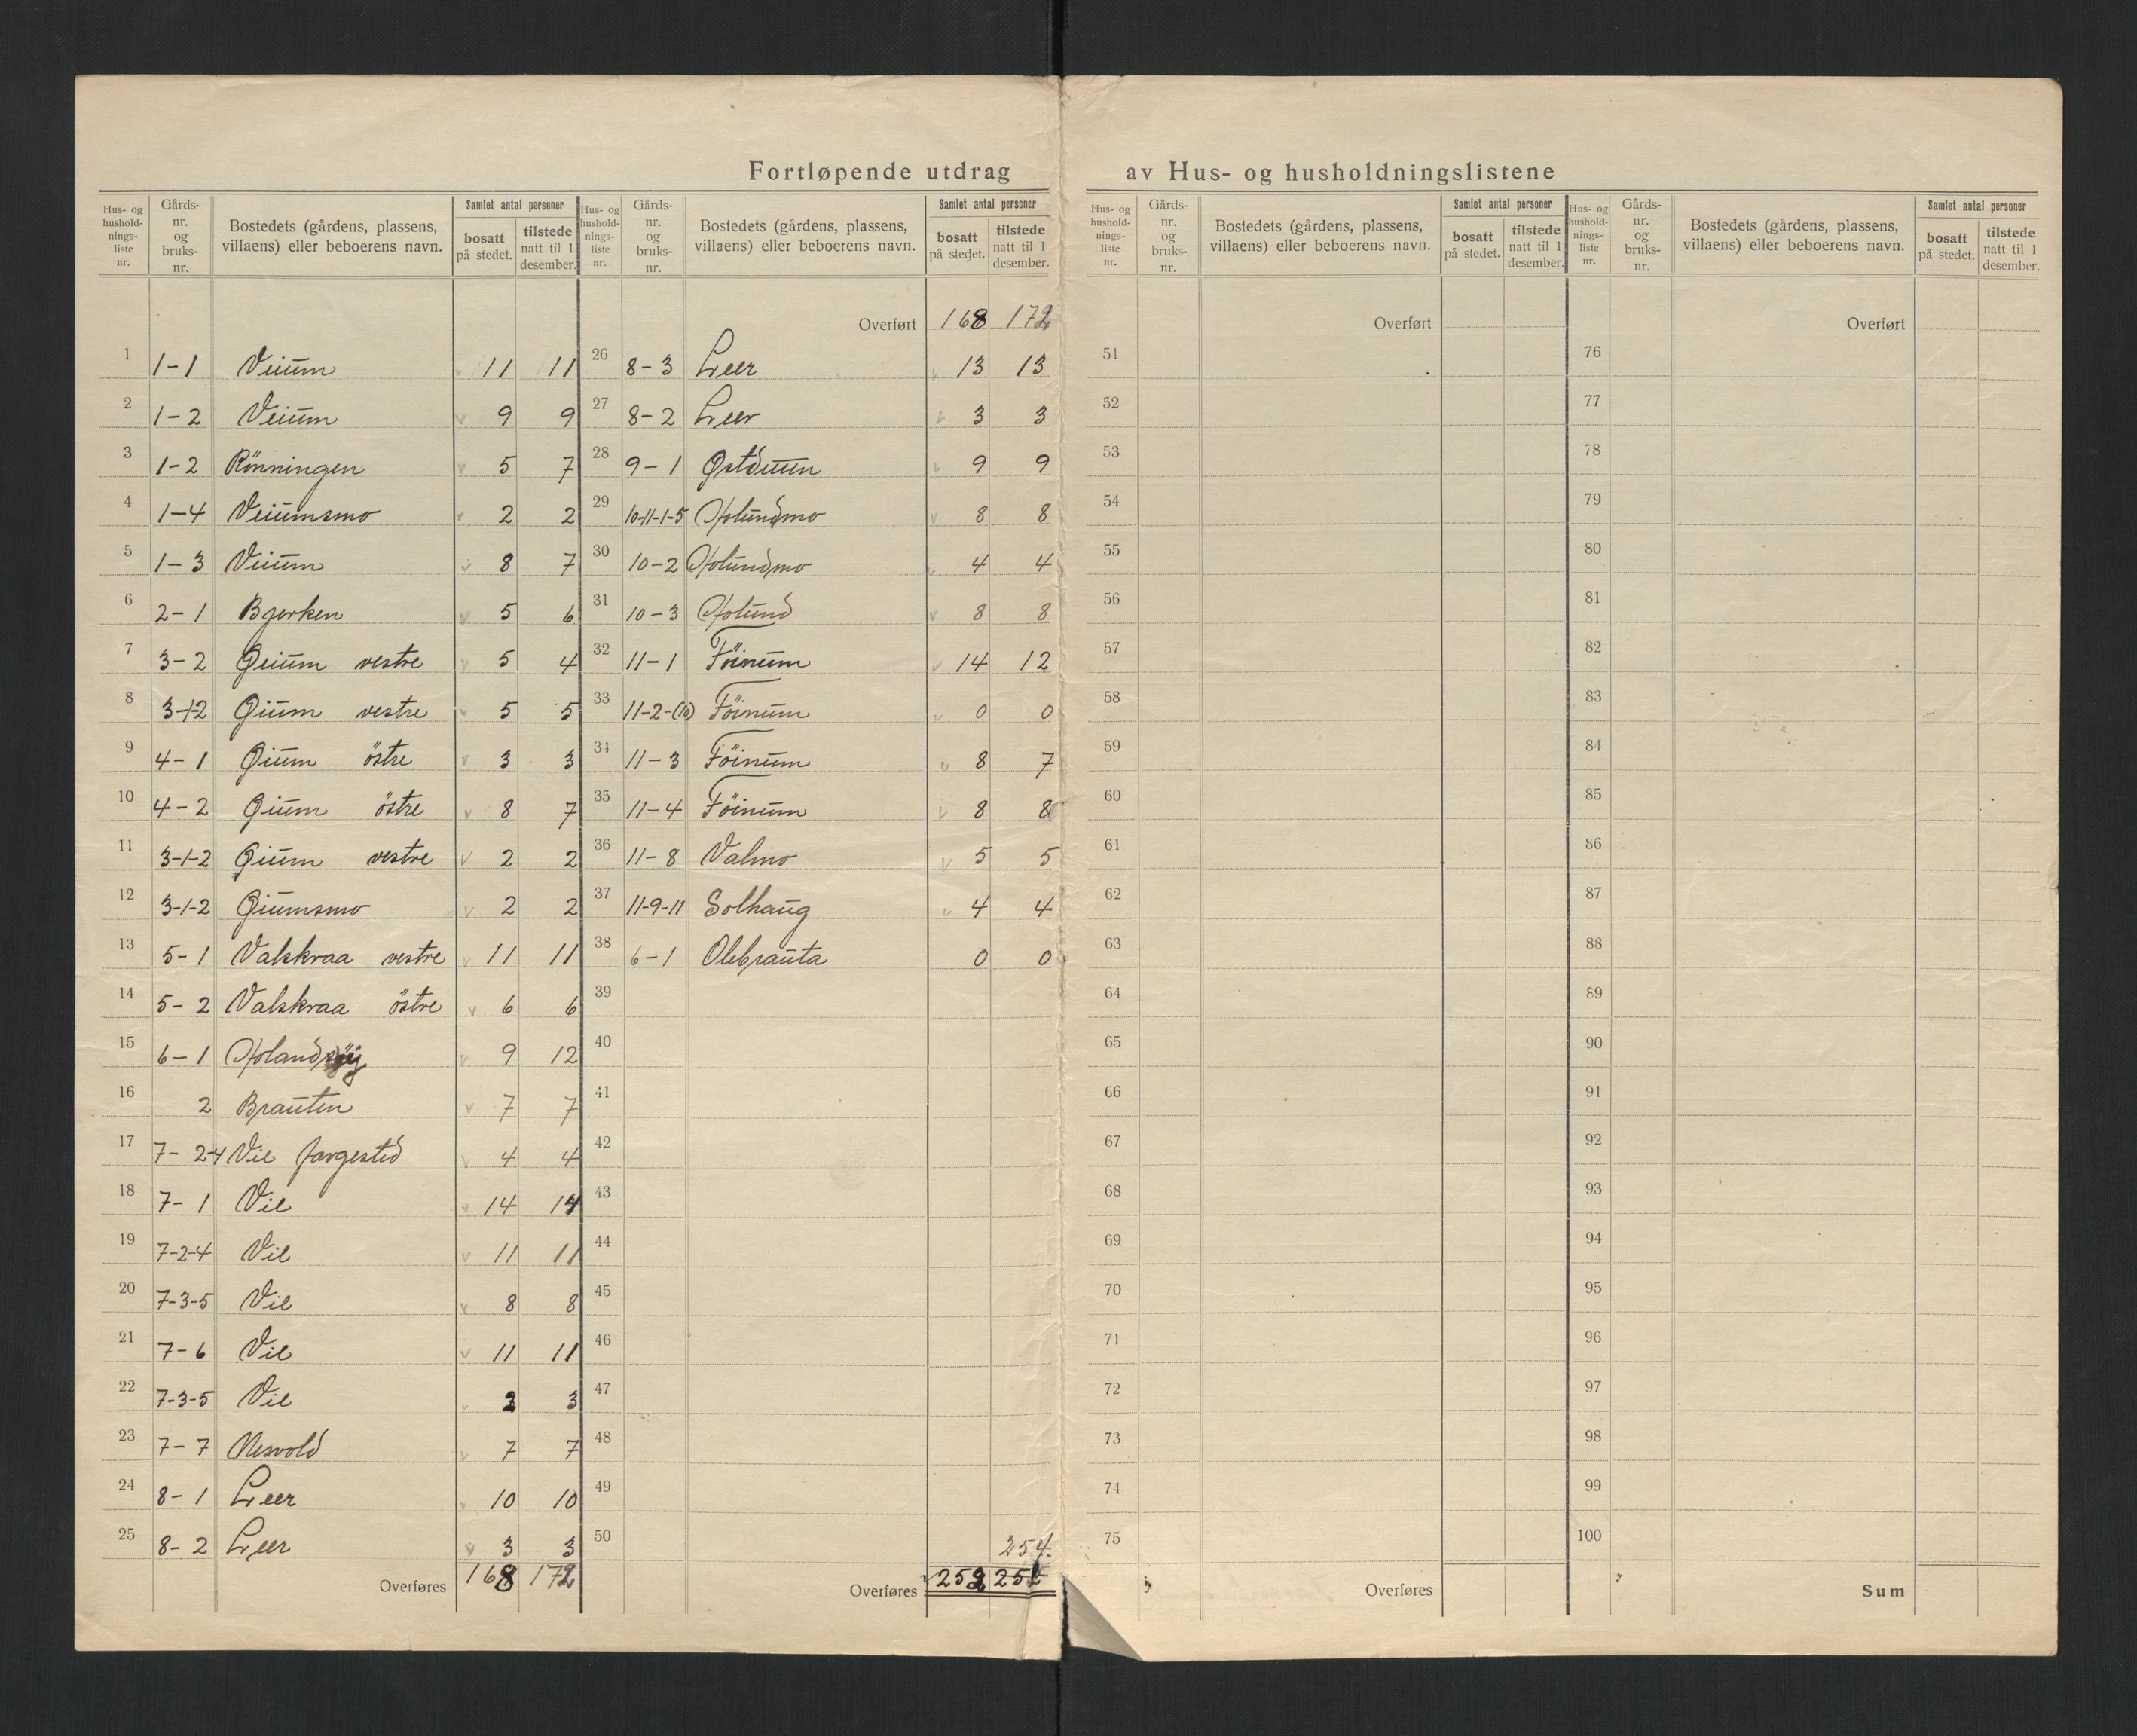 Fortløpende utdrag av Hus- og husholdningslistene
Hus- og hushold-nings-liste nr. Gårds-nr. og bruks-nr. Bostedets (gårdens, plassens, villaens) eller beboerens navn. Samlet antal personer bosatt på stedet. tilstede natt til 1 desember.
1 1-1 Veium 11 11
2 1-2 Veium 9 9
3 1-2 Rönningen 5 7
4 1-4 Veiumsmo 2 2
5 1-3 Veium 8 7
6 2-1 Bjerken 5 6
7 3-2 Øeium vestre 5 4
8 3-1-2 Øium vestre 5 5
9 4-1 Øium östre 3 3
10 4-2 Øium östre 8 7
11 3-1-2 Øium vestre 2 2
12 3-1-2 Øiumsmo 2 2
13 5-1 Valskraa vestre 11 11
14 5-2 Valskraa östre 6 6
15 6-1 9 12
16 2 Brauten 7 7
17 7-2-4 Vie fargested 4 4
18 7-1 Vie 14 14
19 7-2-4 Vie 11 11
20 7-3-5 Vie 8 8
21 7-6 Vie 11 11
22 7-3-5 Vie 2 3
23 7-7 Nesvold 7 7
24 8-1 Leer 10 10
25 8-2 Leer 3 3
Overføres 168 172
Hus- og hushold-nings-liste nr. Gårds-nr. og bruks-nr. Bostedets (gårdens, plassens, villaens) eller beboerens navn. Samlet antal personer bosatt på stedet. tilstede natt til 1 desember.
Overført 168 172
26 8-3 Leer 13 13
27 8-2 Leer 3 3
28 9-1 Østduun 9 9
29 10-11-1-5 Holundmo 8 8
30 10-2 Holundmo 4 4
31 10-3 Holund 8 8
32 11-1 Föinum 14 12
33 11-2-(10) Föinum 0 0
34 11-3 Föinum 8 7
35 11-4 Föinum 8 8
36 11-8 Valmo 5 5
37 11-9-11 Solhaug 4 4
38 6-1 Olebrauta 0 0
39
40
41
42
43
44
45
46
47
48
49
50 254.
Overføres 252 252
Hus- og hushold-nings-liste nr. Gårds-nr. og bruks-nr. Bostedets (gårdens, plassens, villaens) eller beboerens navn. Samlet antal personer bosatt på stedet. tilstede natt til 1 desember.
Overført
51
52
53
54
55
56
57
58
59
60
61
62
63
64
65
66
67
68
69
70
71
72
73
74
75
Overføres
Hus- og hushold-nings-liste nr. Gårds-nr. og bruks-nr. Bostedets (gårdens, plassens, villaens) eller beboerens navn. Samlet antal personer bosatt på stedet. tilstede natt til 1 desember.
Overført
76
77
78
79
80
81
82
83
84
85
86
87
88
89
90
91
92
93
94
95
96
97
98
99
100
Sum